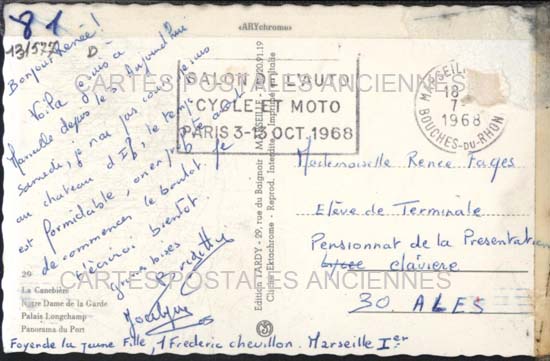 81
«ARYchrome»
13/577
D
Bonjour Renée!
Voilà je suis à
Marseille depuis le Aujourd'hui
samedi, je n'ai pas cours je suis
au château d'If, le temps
est formidable, on en profite avant
de commencer le boulot. Je
t'écrirai bientôt.
grosses bises
Jocelyne
29
La Canebière
Notre Dame de la Garde
Palais Longchamp
Panorama du Port
Foyer de la jeune Fille, 1 Frédéric chevillon. Marseille Ier
Edition TARDY - 29, rue du Baignoir - MARSEILLE - Tél. 20.91.19
Cliché Ektachrome - Reprod. Interdite - Imprimé en Italie
SALON DE L'AUTO
CYCLE ET MOTO
PARIS 3-13 OCT. 1968
MARSEIL
18-
7-
1968
BOUCHES-DU-RHON
Mademoiselle Renée Fages
Elève de Terminale
Pensionnat de la Presentation
Lycée clavière
30 ALES
CARTES POSTALES ANCIENNES
CARTES POSTALES ANCIENNES